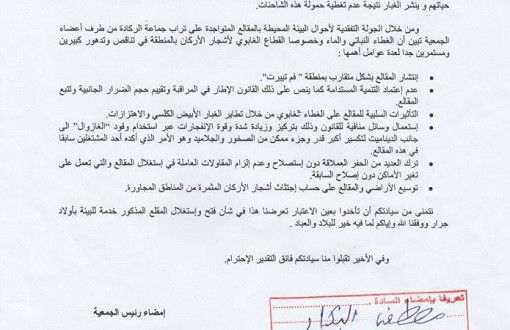 حياتهم و ينشر الغبار نتيجة عدم تغطية حمولة هذه الشاحنات.
ومن خلال الجولة التفقدية لأحوال البيئة المحيطة بالمقالع المتواجدة على تراب جماعة الركادة من طرف أعضاء
الجمعية تبين أن الغطاء النباتي والماء وخصوصا القطاع الغابوي لأشجار الأركان بالمنطقة في تناقص وتدهور كبيرين
ومستمرين جدا لعدة عوامل أهمها :
• إنتشار المقالع بشكل متقارب بمنطقة " فم تييرت".
• عدم إعتماد التنمية المستدامة كما ينص على ذلك القانون الإطار في المراقبة وتقييم حجم الضرار الجانبية وتتبع
المقالع.
• التأثيرات السلبية للمقالع على الغطاء الغابوي من خلال تطاير الغبار الأبيض الكلسي والاهتزازات.
• إستعمال وسائل منافية للقانون وذلك بتركيز وزيادة شدة وقوة الإنفجارات عبر استخدام وقود "الغازوال" الى
جانب الديناميت لتكسير أكبر قدر وجزء ممكن من الصخور والجلاميد وهو الأمر الذي أكده أحد المشتغلين سابقا
في هذه المقالع.
• ترك العديد من الحفر العملاقة بدون إستصلاح وعدم إلزام المقاولات العاملة في إستغلال المقالع والتي تعمل على
تغير الأماكن دون إصلاح السابقة.
• توسيع الأراضي والمقالع على حساب إجتثاث أشجار الأركان المثمرة من المناطق المجاورة.
نتمنى من سيادتكم أن تأخذوا بعين الاعتبار تعرضنا هذا في شأن فتح وإستغلال المقلع المذكور خدمة للبيئة بأولاد
جرار ووفقنا الله وإياكم لما فيه خير للبلاد والعباد .
وفي الأخير تقبلوا منا سيادتكم فائق التقدير الإحترام.
إمضاء رئيس الجمعية
تعريفا بإمضاء السادة